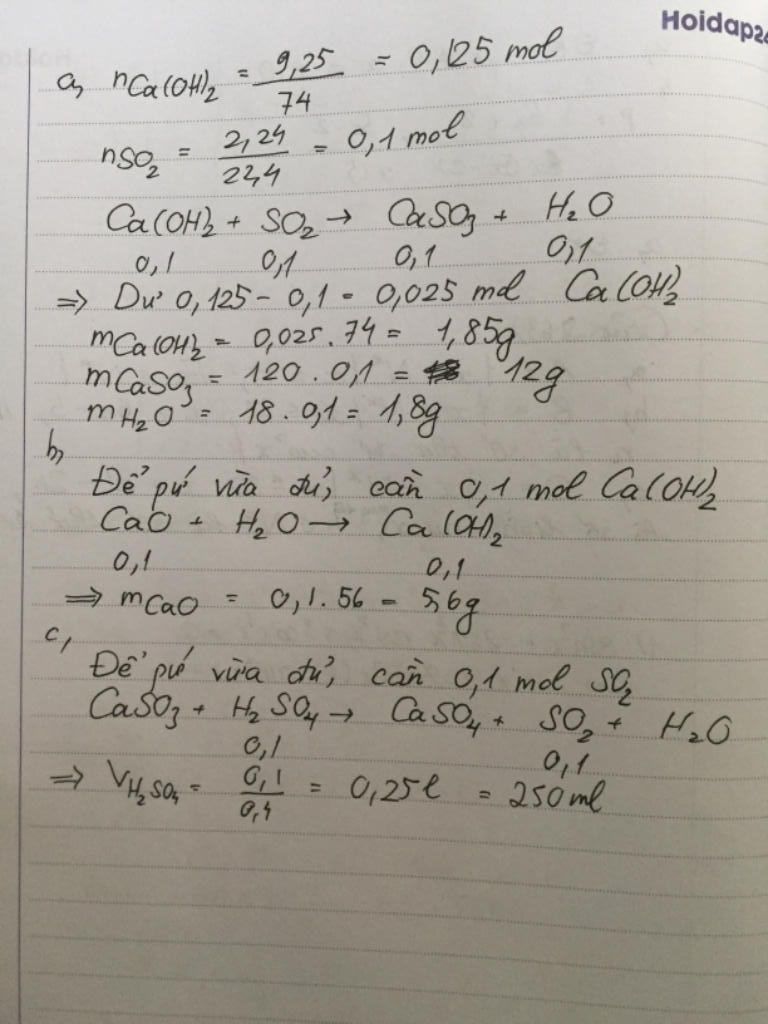 Hoidap24
a, nCa(OH)₂ = 9,25/74 = 0,125 mol
nSO₂ = 2,24/22,4 = 0,1 mol
Ca(OH)₂ + SO₂ → CaSO₃ + H₂O
0,1 0,1 0,1 0,1
=> Dư 0,125 - 0,1 = 0,025 mol Ca(OH)₂
mCa(OH)₂ = 0,025 . 74 = 1,85g
mCaSO₃ = 120 . 0,1 = 12g
mH₂O = 18 . 0,1 = 1,8g
b,
Để pứ vừa đủ, cần 0,1 mol Ca(OH)₂
CaO + H₂O → Ca(OH)₂
0,1 0,1
=> mCaO = 0,1 . 56 = 5,6g
c,
Để pứ vừa đủ, cần 0,1 mol SO₂
CaSO₃ + H₂SO₄ → CaSO₄ + SO₂ + H₂O
0,1 0,1
=> VH₂SO₄ = 0,1/0,4 = 0,25l = 250ml